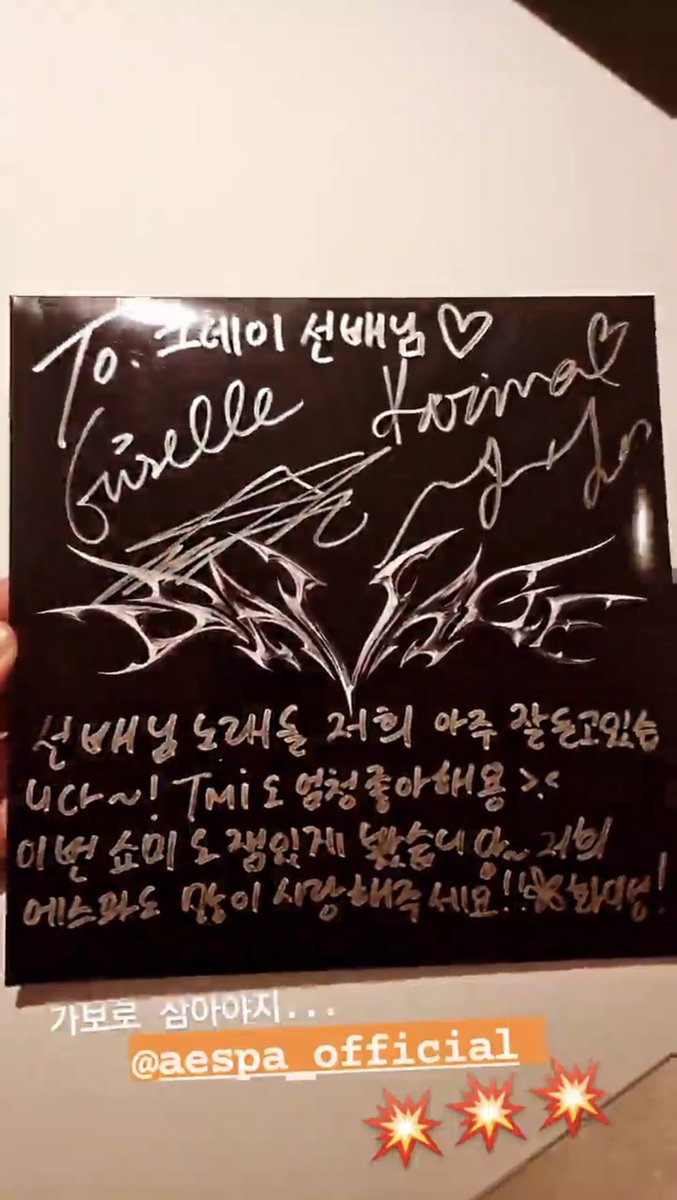 To. 그레이 선배님♡
Giselle Karina♡
SAVAGE
선배님 노래들 저희 아주 잘듣고있습
니다~! TMI도 엄청 좋아해용 >.<
이번 쇼미도 잼있게 봤습니당~ 저희
에스파도 많이 사랑해주세요!! 화이팅!
가보로 삼아야지...
@aespa_official